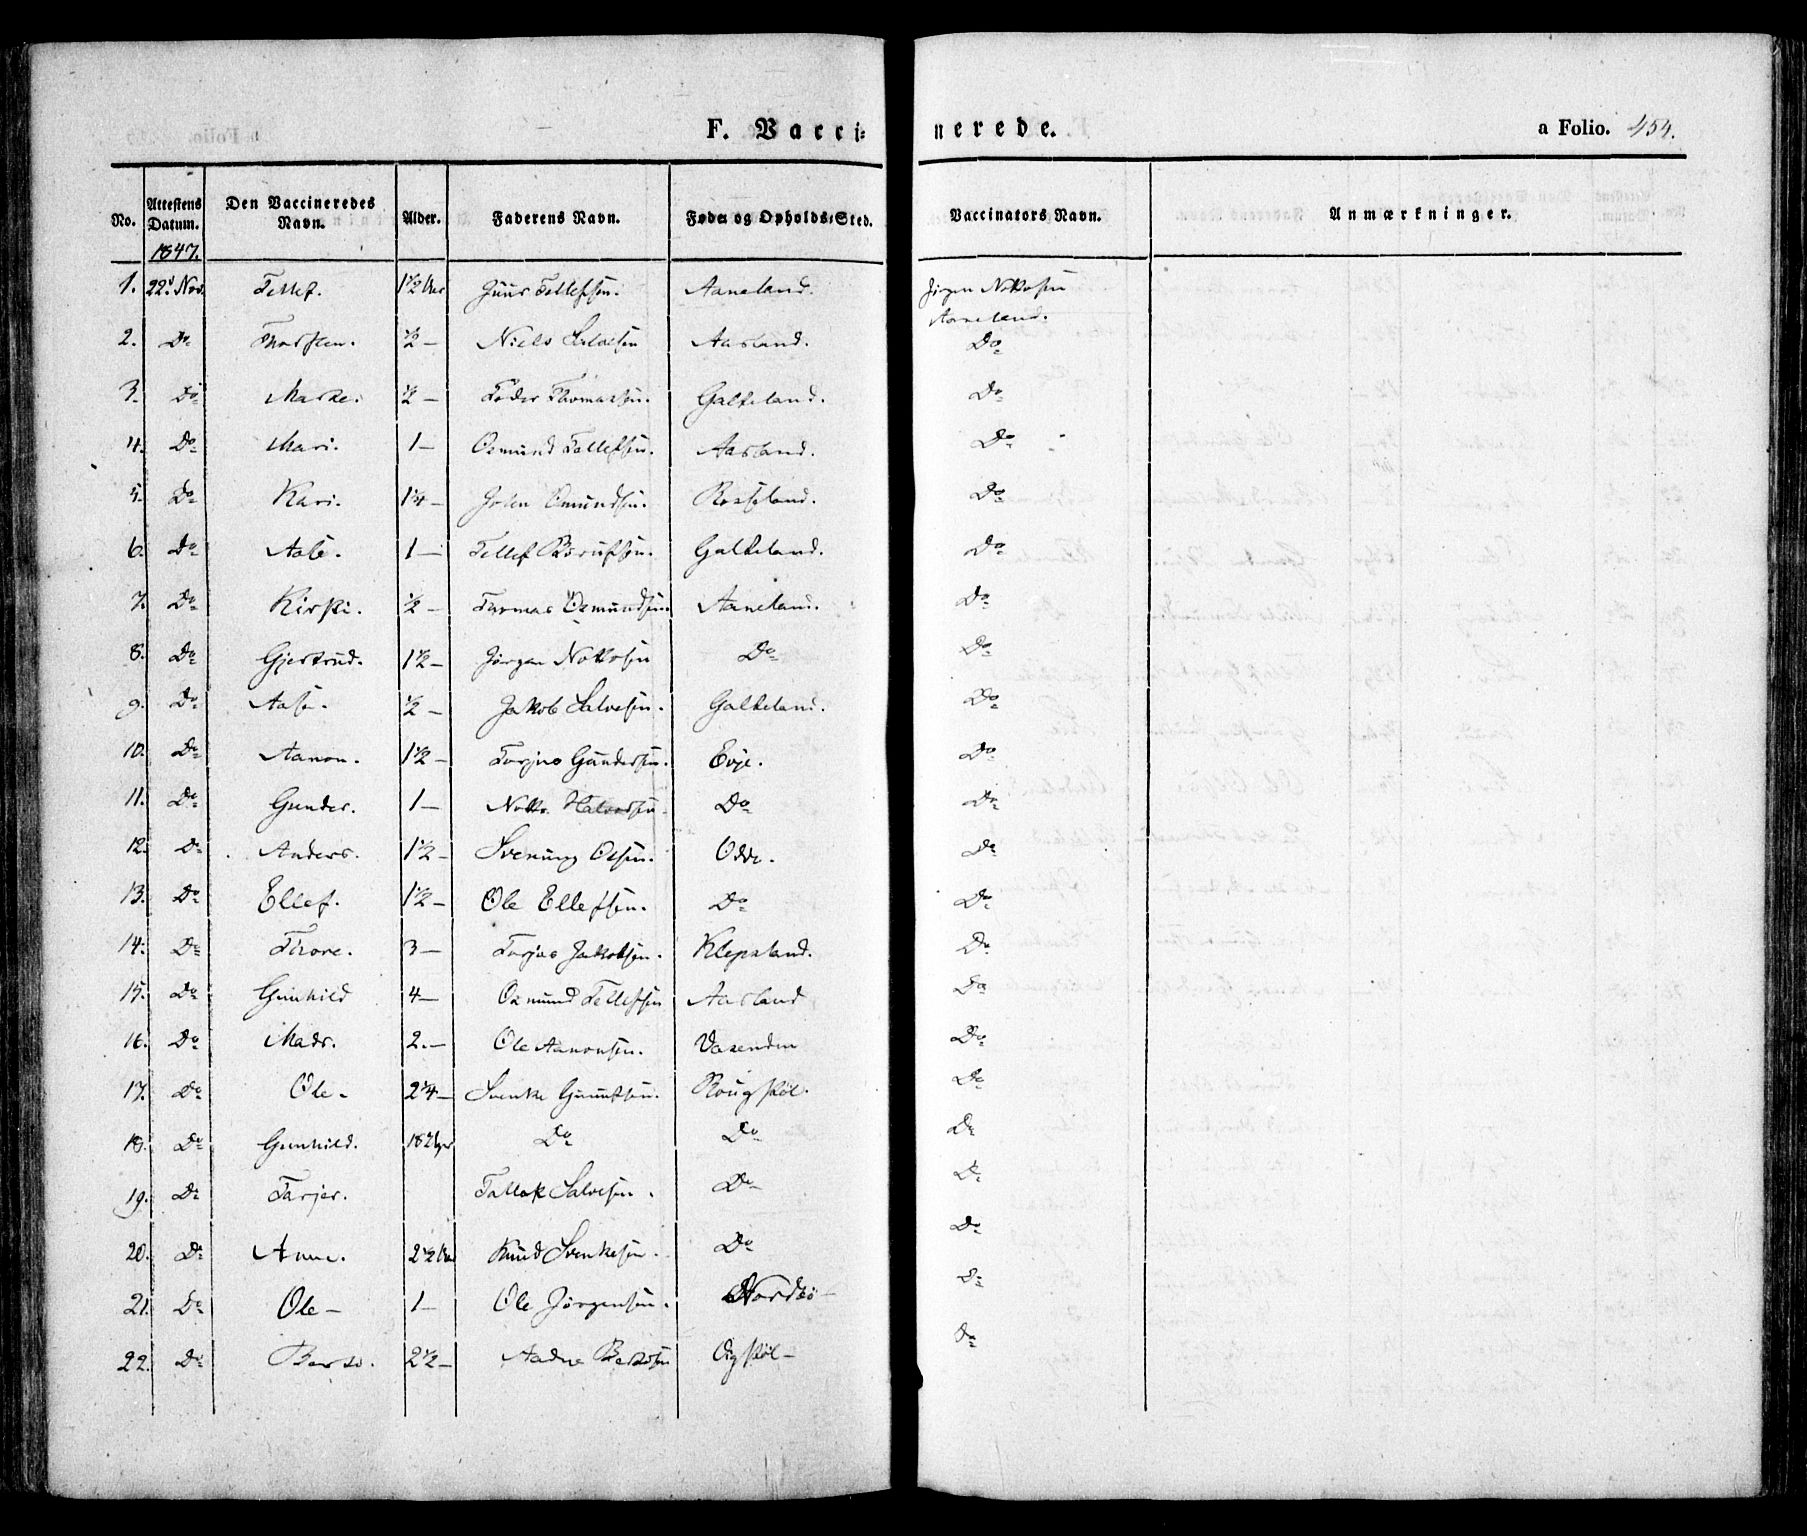 F. Vacci- nerede. a Folio. 454.
No. Attestens Datum. Den Vaccineredes Navn. Alder. Faderens Navn. Føde- og Opholds-Sted. Vaccinators Navn. Anmærkninger.
1847.
1. 22d Nov. Tellef. 1½ Aar Tellefsen. Aaneland. Jörgen Nottosen
Aaneland.
2. Do Thorsten. ½ — Niels Salvesen Aasland. Do
3. Do ½ — Peder Thomassen. Galteland. Do
4. Do Mari. 1 — Osmund Tellefsen. Aasland. Do
5. Do Kari. 1¼ — John Osmundsen. Rosseland. Do
6. Do Aase. 1 — Tellef Galteland. Do
7. Do Kirsti. ½ — Tarmas Osmundsen. Aaneland. Do
8. Do Gjertrud. 1½ — Jörgen Nottosen Do Do
9. Do Aase. ½ — Jakob Salvesen. Galteland. Do
10. Do Aanon. 1½ — Torjus Gundersen. Evje. Do
11. Do Gunder. 1 — Notto Halvorsen. Do Do
12. Do Anders. 1½ — Svenung Olsen. Odde. Do
13. Do Ellef. 1½ — Ole Ellefsen. Do Do
14. Do Thore. 3 — Torjus Jakobsen. Klepsland. Do
15. Do Gunhild 4 — Osmund Tellefsen Aasland Do
16. Do Mads. 2. — Ole Aanonsen. Vasenden Do
17. Do Ole — 2¼ — Svenke Gunufsen. Do
18. Do Gunhild. 18 Uger Do Do Do
19. Do Tarjer. Tallak Salvesen. Do Do
20. Do Anne. 2½ Aar Knud Svenkesen. Do Do
21. Do Ole — 1 — Ole Jörgensen. Nordbö — Do
22. Do 2½ — Aadne Do